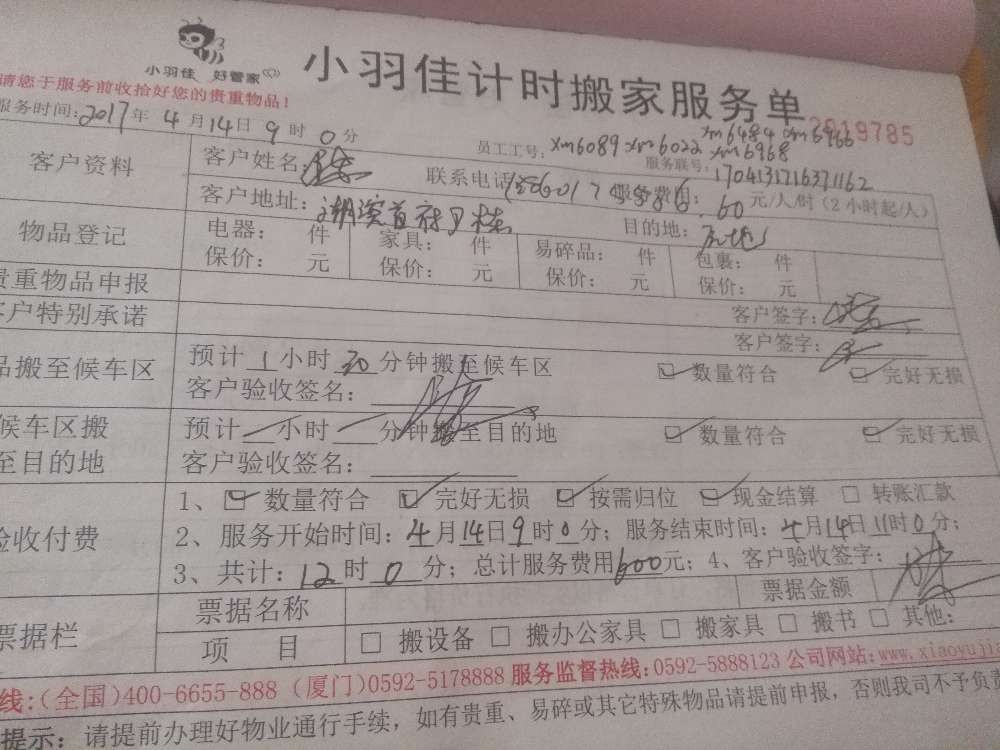 小羽佳 好管家
小羽佳计时搬家服务单
请您于服务前收拾好您的贵重物品!
2019785
服务时间:2017年4月14日9时0分
员工工号: xm6089 xm6022 xm6484 xm6966 xm6968
服务联号: 1704131716371162
客户资料
客户姓名:
联系电话
服务费用: 60元/人/时(2小时起/人)
客户地址: 湖滨首府
目的地:
物品登记
电器: 件 家具: 件 易碎品: 件 包裹: 件
保价: 元 保价: 元 保价: 元 保价: 元
贵重物品申报
客户签字:
客户特别承诺
客户签字:
品搬至候车区
预计1小时30分钟搬至候车区
☑数量符合 ☑完好无损
客户验收签名:
候车区搬至目的地
预计 小时 分钟搬至目的地
☑数量符合 ☑完好无损
客户验收签名:
验收付费
1、☑数量符合 ☑完好无损 ☑按需归位 ☑现金结算 □转账汇款
2、服务开始时间:4月14日9时0分;服务结束时间:4月14日11时0分;
3、共计:12时0分;总计服务费用600元;4、客户验收签字:
票据栏
票据名称
票据金额
项 目 □搬设备 □搬办公家具 □搬家具 □搬书 □其他:
线:(全国)400-6655-888 (厦门)0592-5178888 服务监督热线:0592-5888123 公司网站:www.xiaoyujia
提示:请提前办理好物业通行手续,如有贵重、易碎或其它特殊物品请提前申报,否则我司不予负责